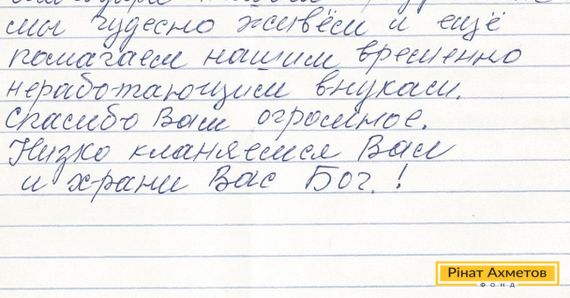 мы чудесно живём и ещё
помагаем нашим временно
неработающим внукам.
Спасибо Вам огромное.
Низко кланяемся Вам
и храни Вас Бог. !
Рінат Ахметов
ФОНД